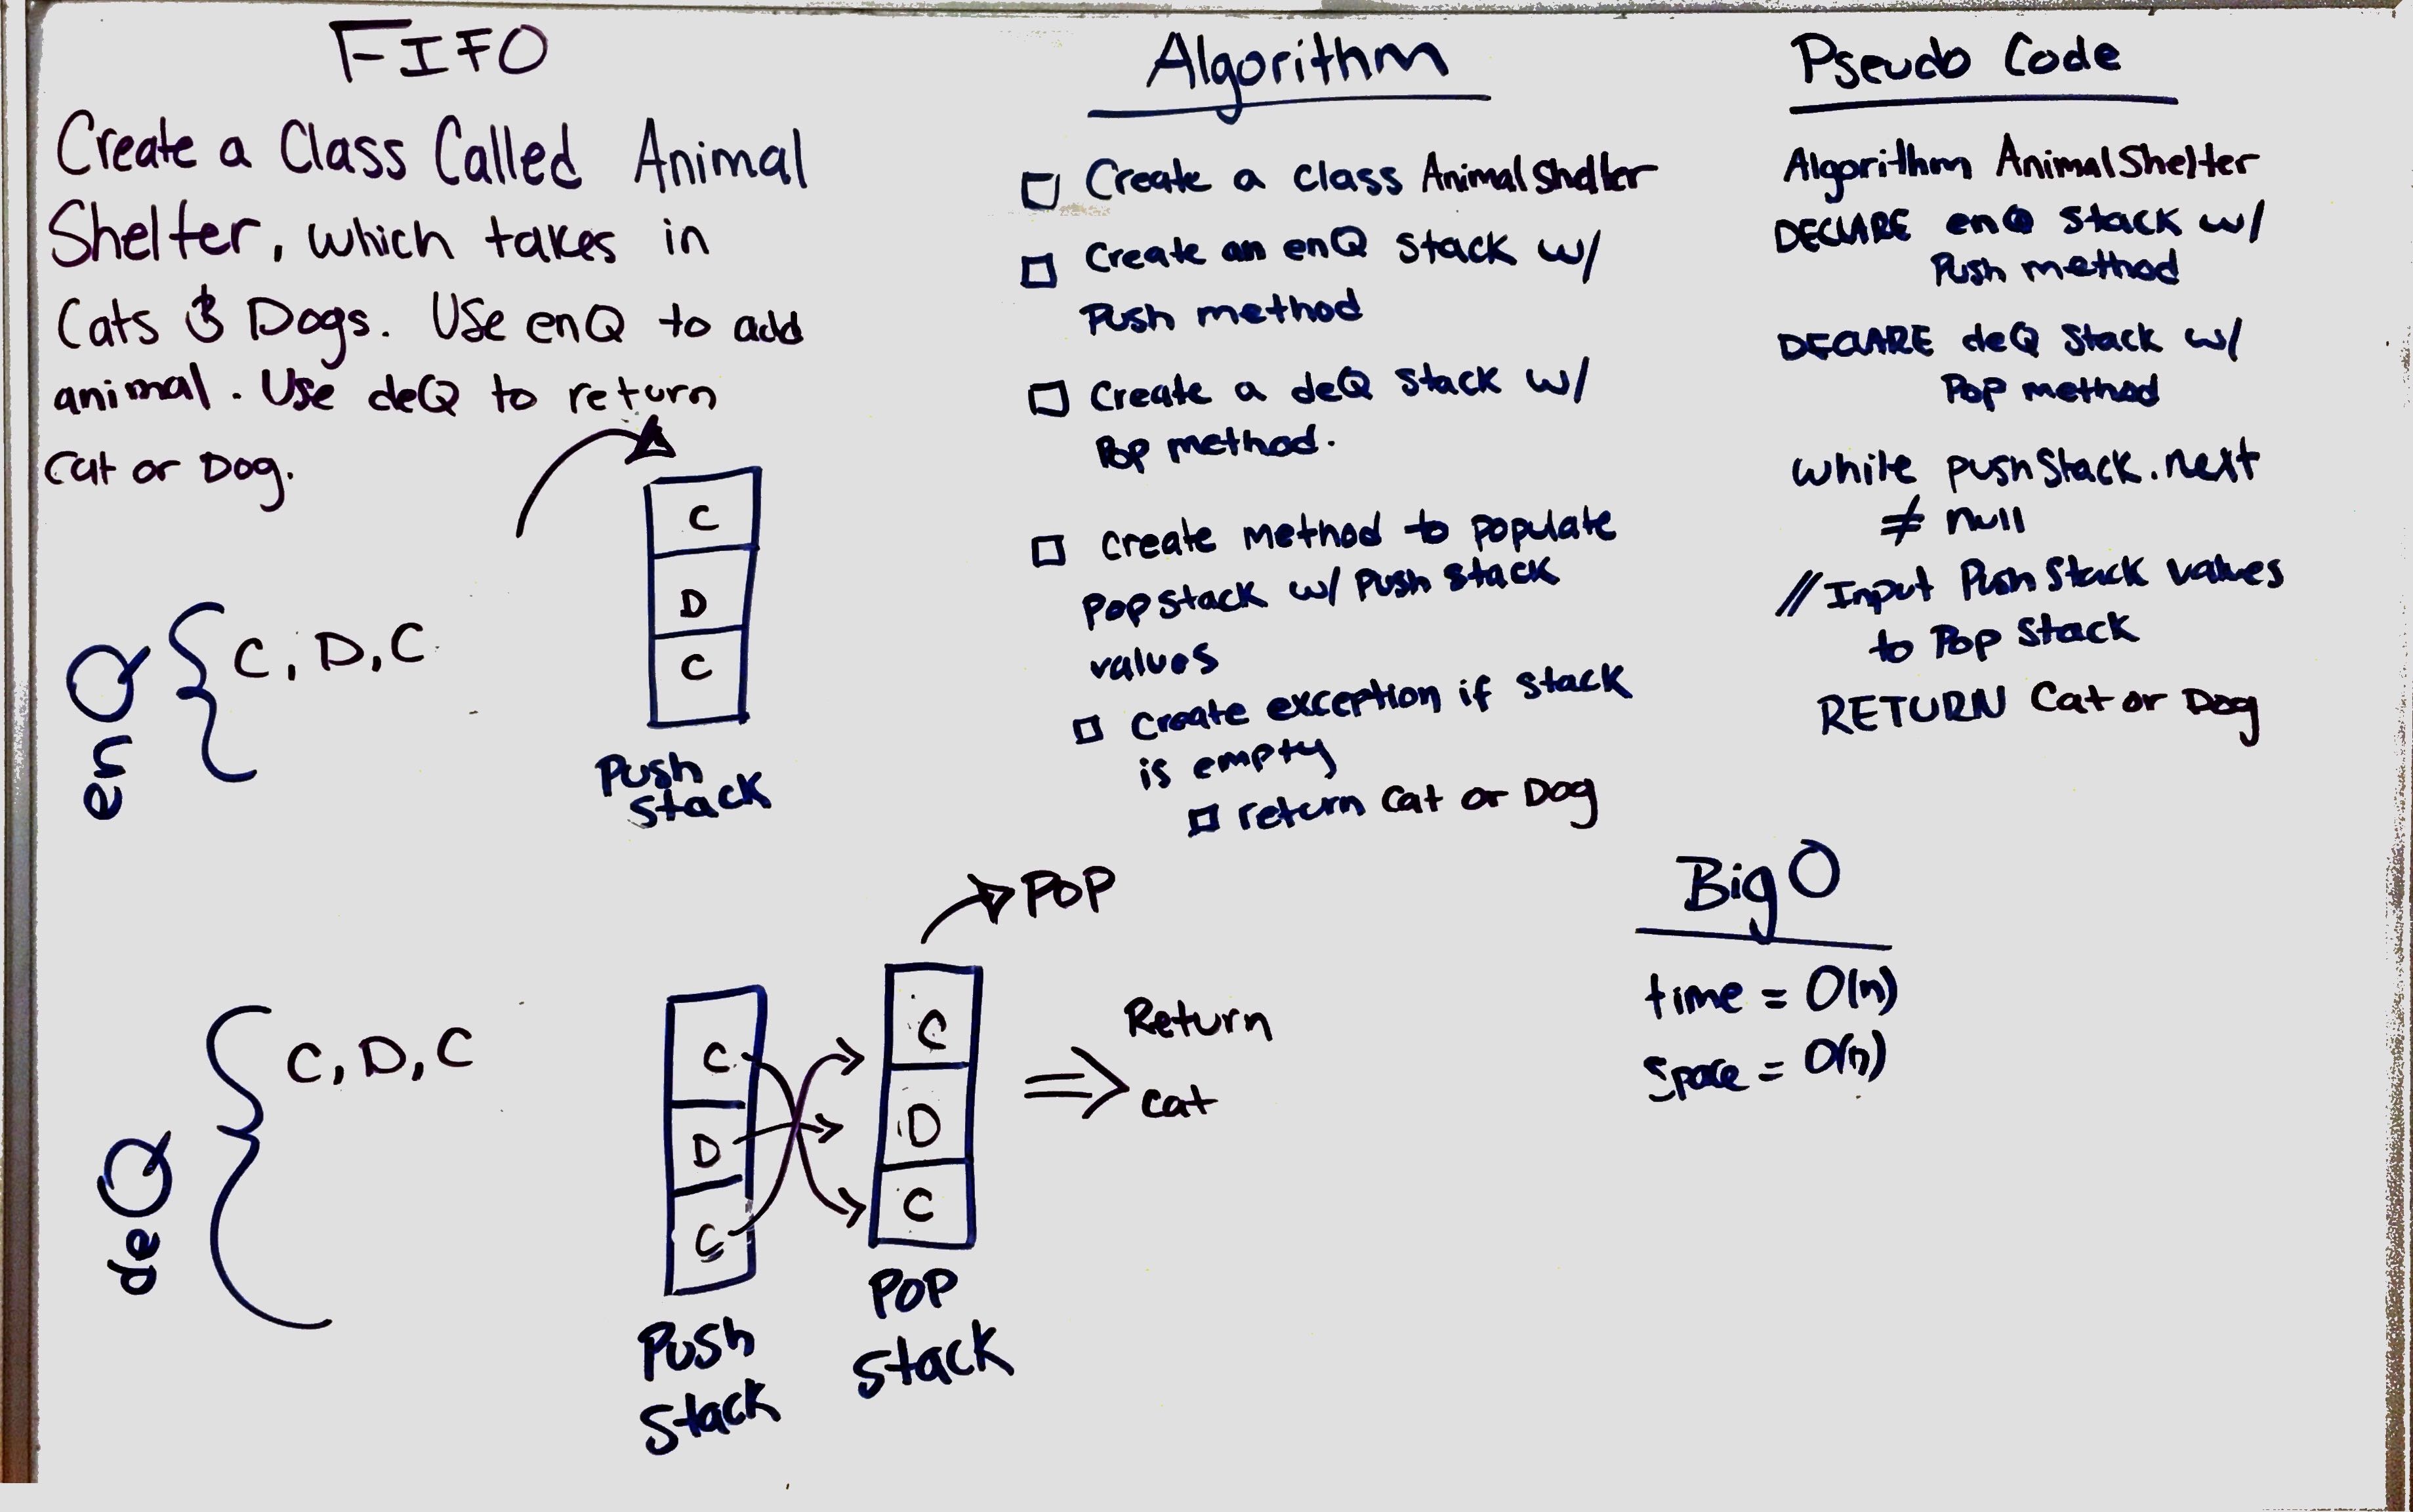 FIFO
Create a Class Called Animal
Shelter, which takes in
Cats & Dogs. Use enQ to add
animal. Use deQ to return
Cat or Dog.
C
D
C
Push
Stack
enQ
C, D, C
deQ
C, D, C
C
D
C
Push
Stack
POP
C
D
C
POP
Stack
Return
cat
Algorithm
Create a class AnimalShelter
Create an enQ Stack w/
Push method
Create a deQ Stack w/
Pop method.
Create method to populate
popstack w/ Push stack
values
Create exception if stack
is empty
return Cat or Dog
Pseudo Code
Algorithm AnimalShelter
DECLARE enQ Stack w/
Push method
DECLARE deQ Stack w/
Pop method
while pushStack.next
≠ null
// Input Push Stack values
to Pop Stack
RETURN Cat or Dog
Big O
time = O(n)
Space = O(n)